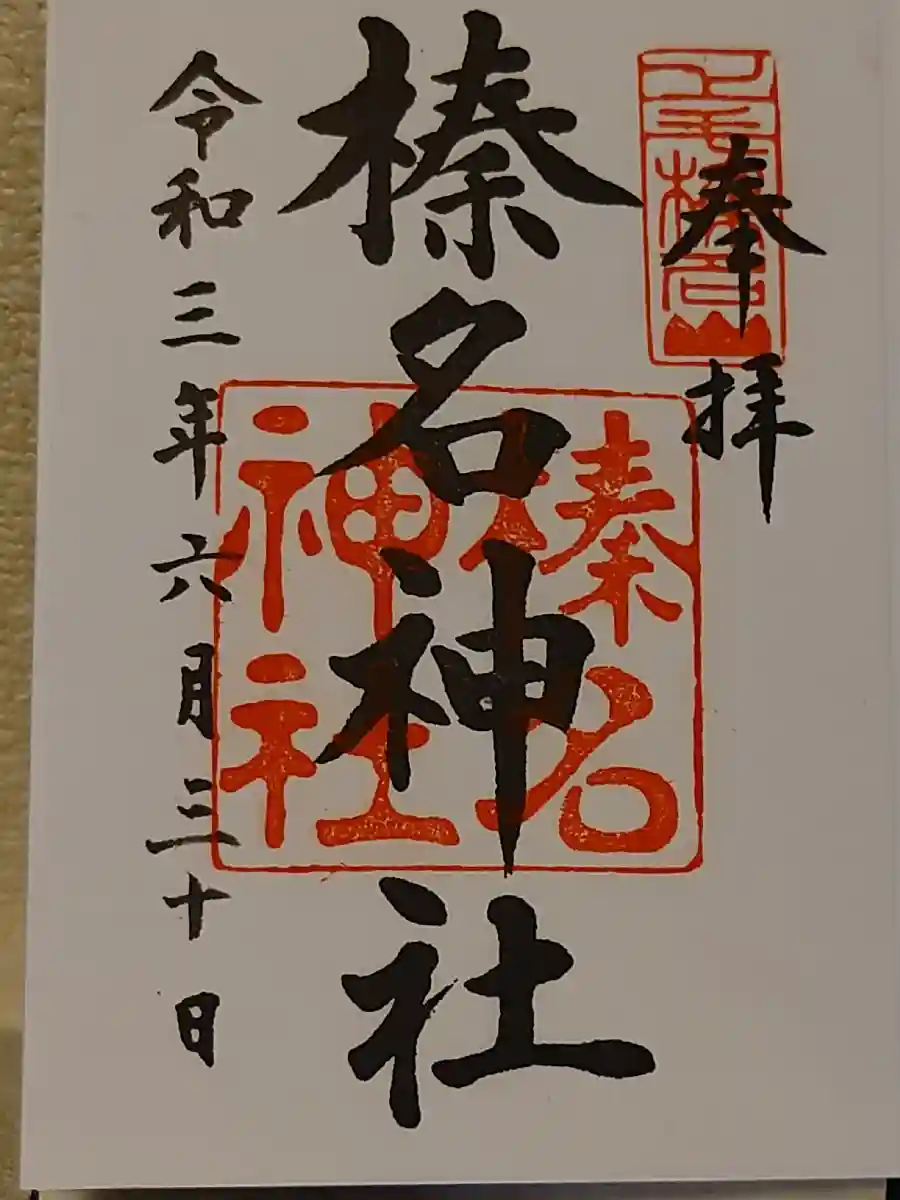 奉拝
上毛榛名山
榛名神社
榛名
神社
令和三年六月三十日